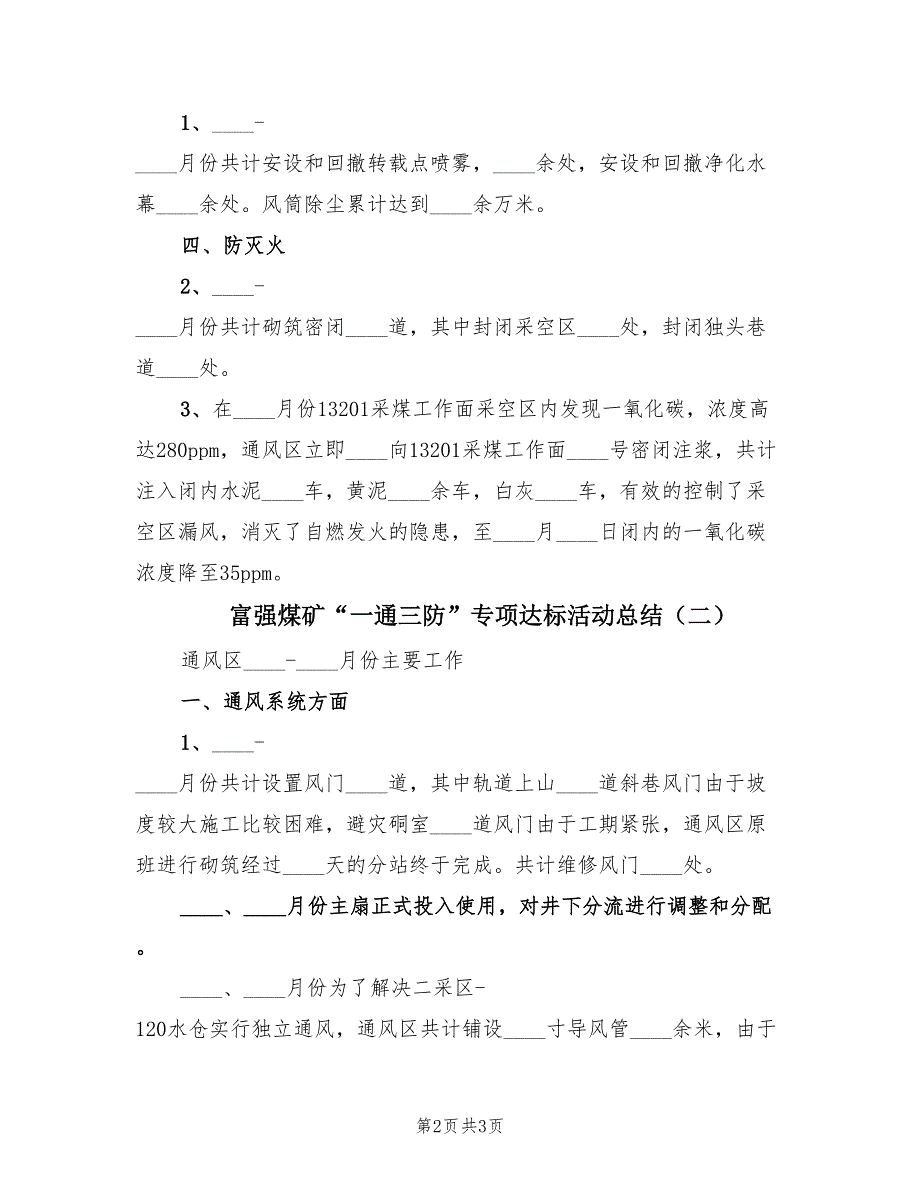 1、____-
____月份共计安设和回撤转载点喷雾，____余处，安设和回撤净化水
幕____余处。风筒除尘累计达到____余万米。
四、防灭火
2、____-
____月份共计砌筑密闭____道，其中封闭采空区____处，封闭独头巷
道____处。
3、在____月份13201采煤工作面采空区内发现一氧化碳，浓度高
达280ppm，通风区立即____向13201采煤工作面____号密闭注浆，共计
注入闭内水泥____车，黄泥____余车，白灰____车，有效的控制了采
空区漏风，消灭了自燃发火的隐患，至____月____日闭内的一氧化碳
浓度降至35ppm。
富强煤矿“一通三防”专项达标活动总结（二）
通风区____-____月份主要工作
一、通风系统方面
1、____-
____月份共计设置风门____道，其中轨道上山____道斜巷风门由于坡
度较大施工比较困难，避灾硐室____道风门由于工期紧张，通风区原
班进行砌筑经过____天的分站终于完成。共计维修风门____处。
____、____月份主扇正式投入使用，对井下分流进行调整和分配
。
____、____月份为了解决二采区-
120水仓实行独立通风，通风区共计铺设____寸导风管____余米，由于
第2页共3页